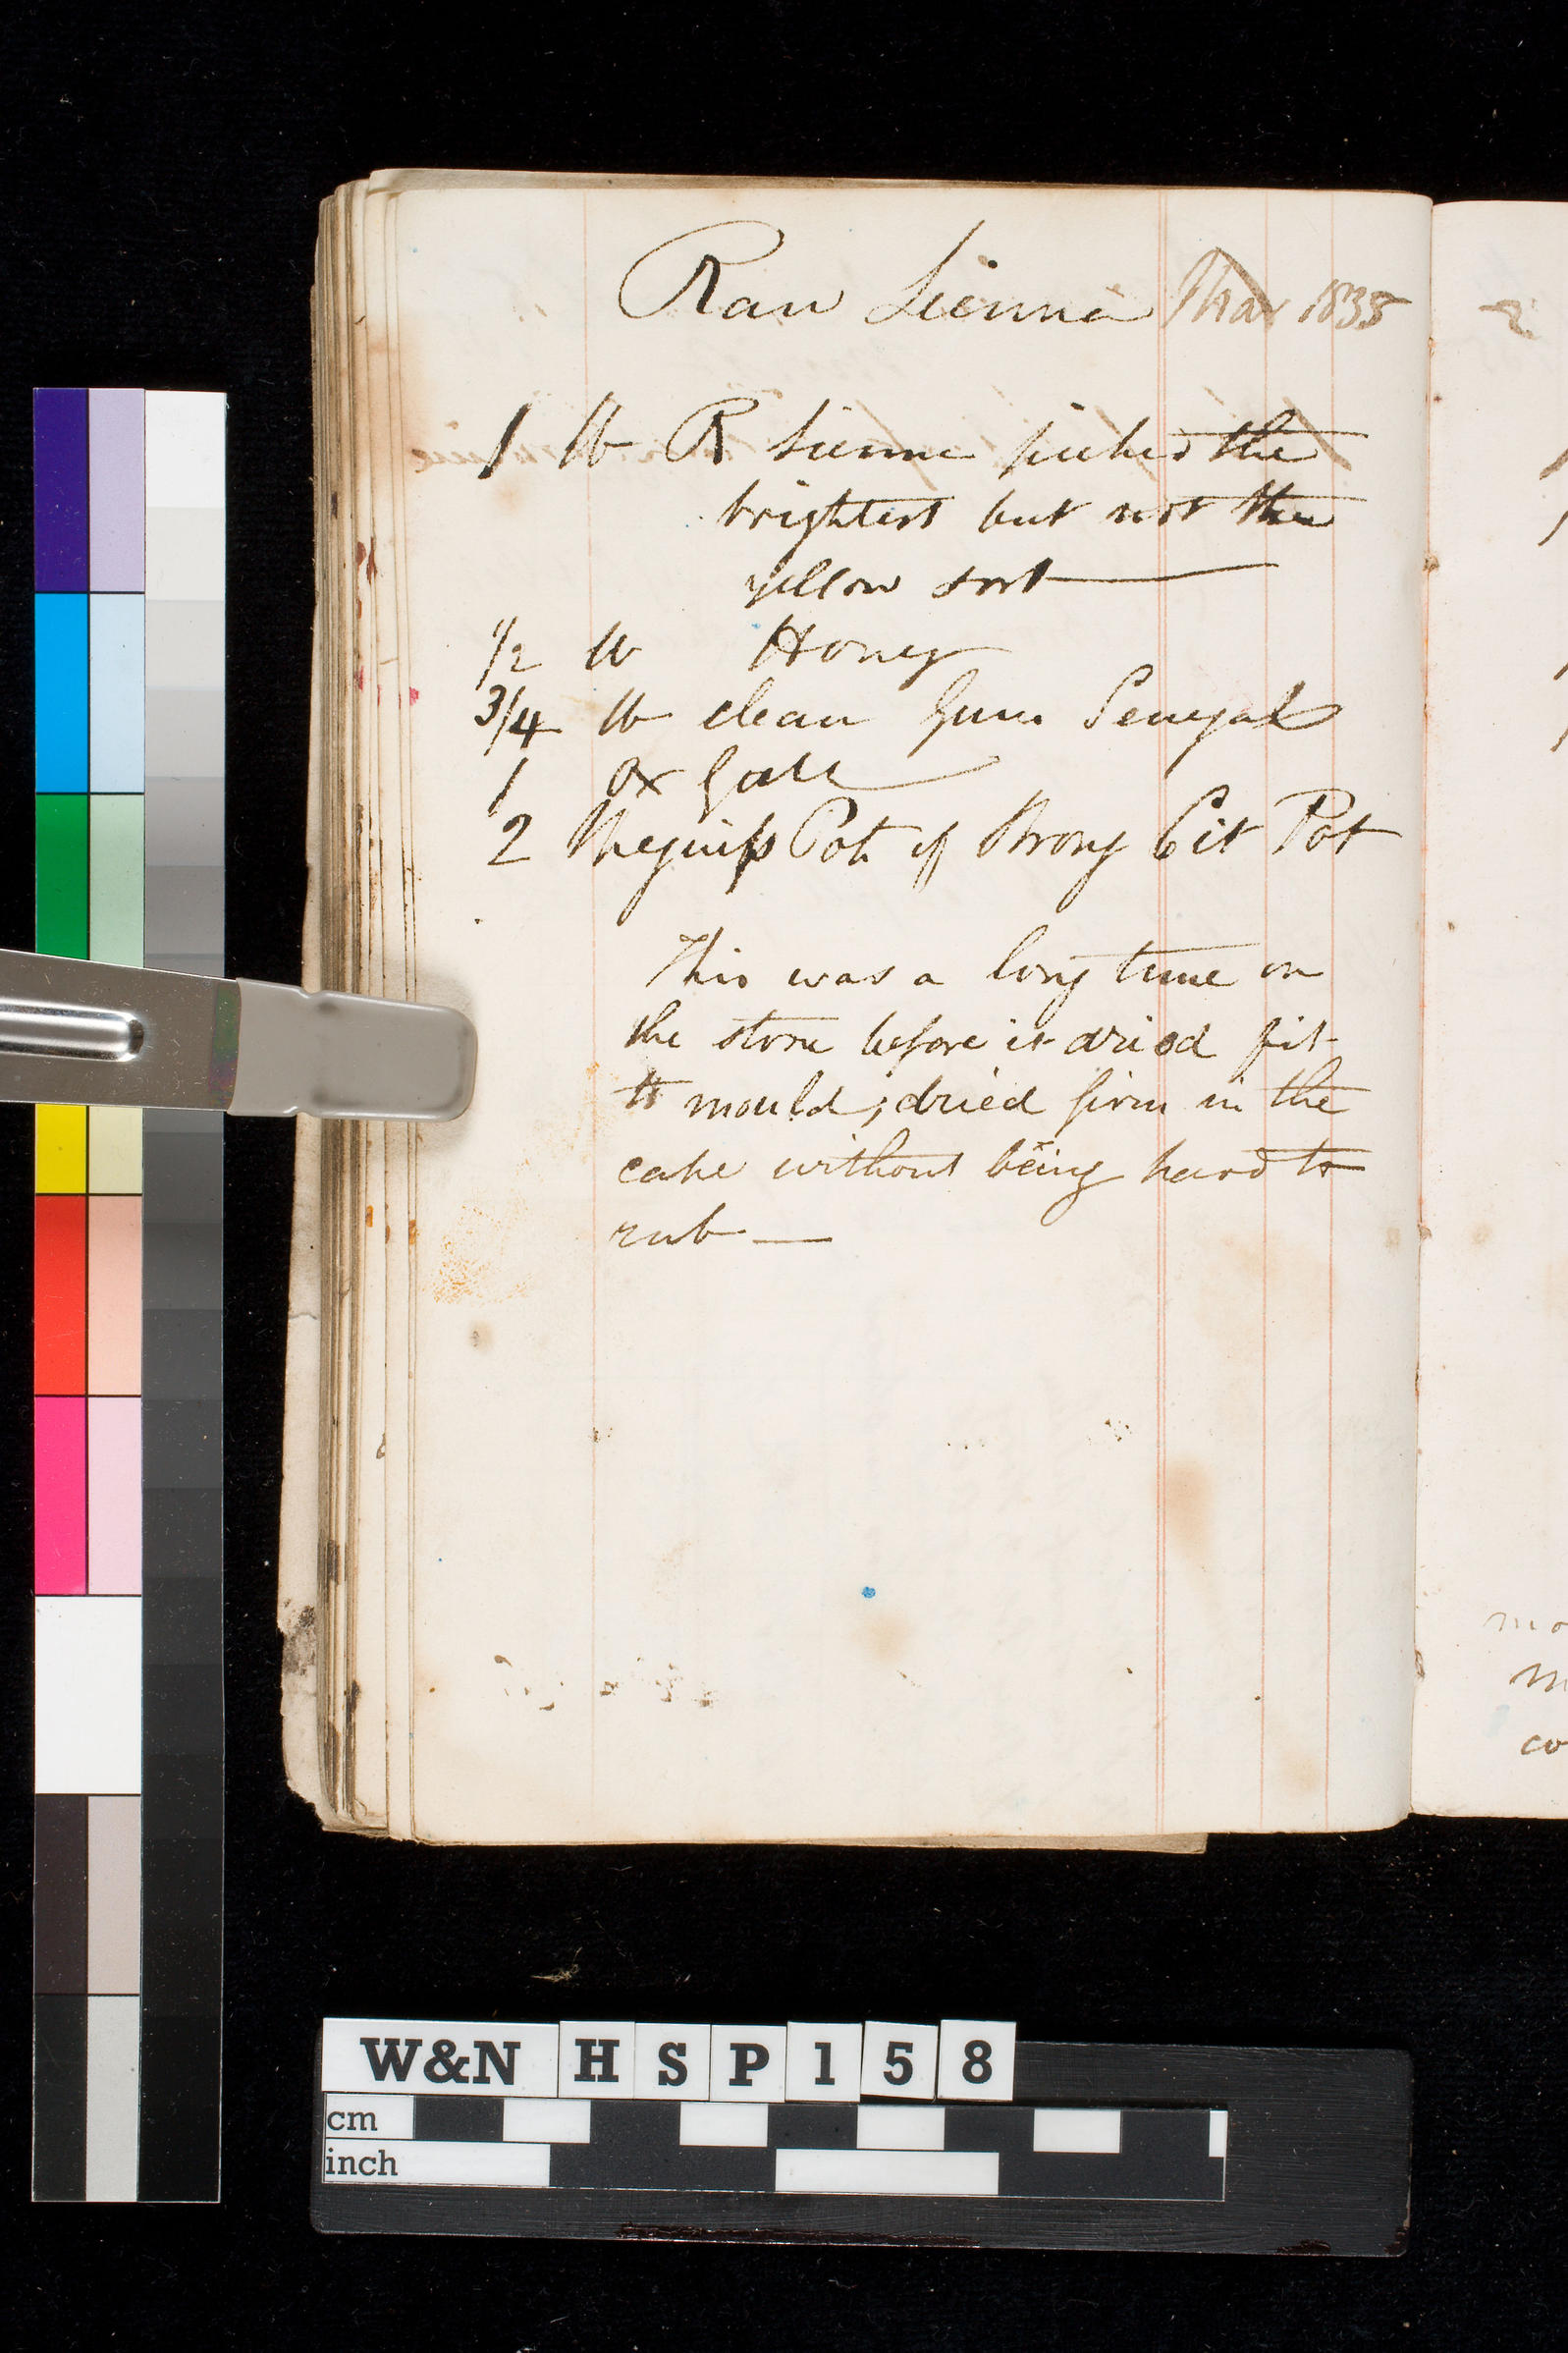 Raw Sienna Mar 1835
1 lb R Sienna picked the
brightest but not the
yellow sort
1/2 lb Honey
3/4 lb clean Gum Senegal
1 Ox Gall
2 Pots of Strong Cit Pot
This was a long time on
the stone before it dried fit
to mould; dried firm in the
cake without being hard to
rub —
mo
m
co
W&N HSP158
cm
inch